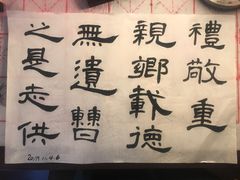 禮敬重
親鄉載德
無遺曹
之是志供
2019.11.4.6